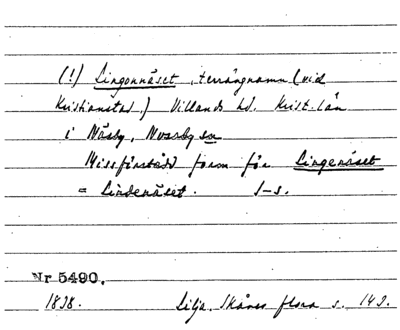 (!) Lingonnäset, terrängnamn (vid
Kristianstad) Villands hd. Krist. län
i Näsby, Nosaby sn
Missförstådd form för Lingenäset
= Lindenäset. I-s.
Nr 5490.
1838. Lilja. Skånes flora s. 149.